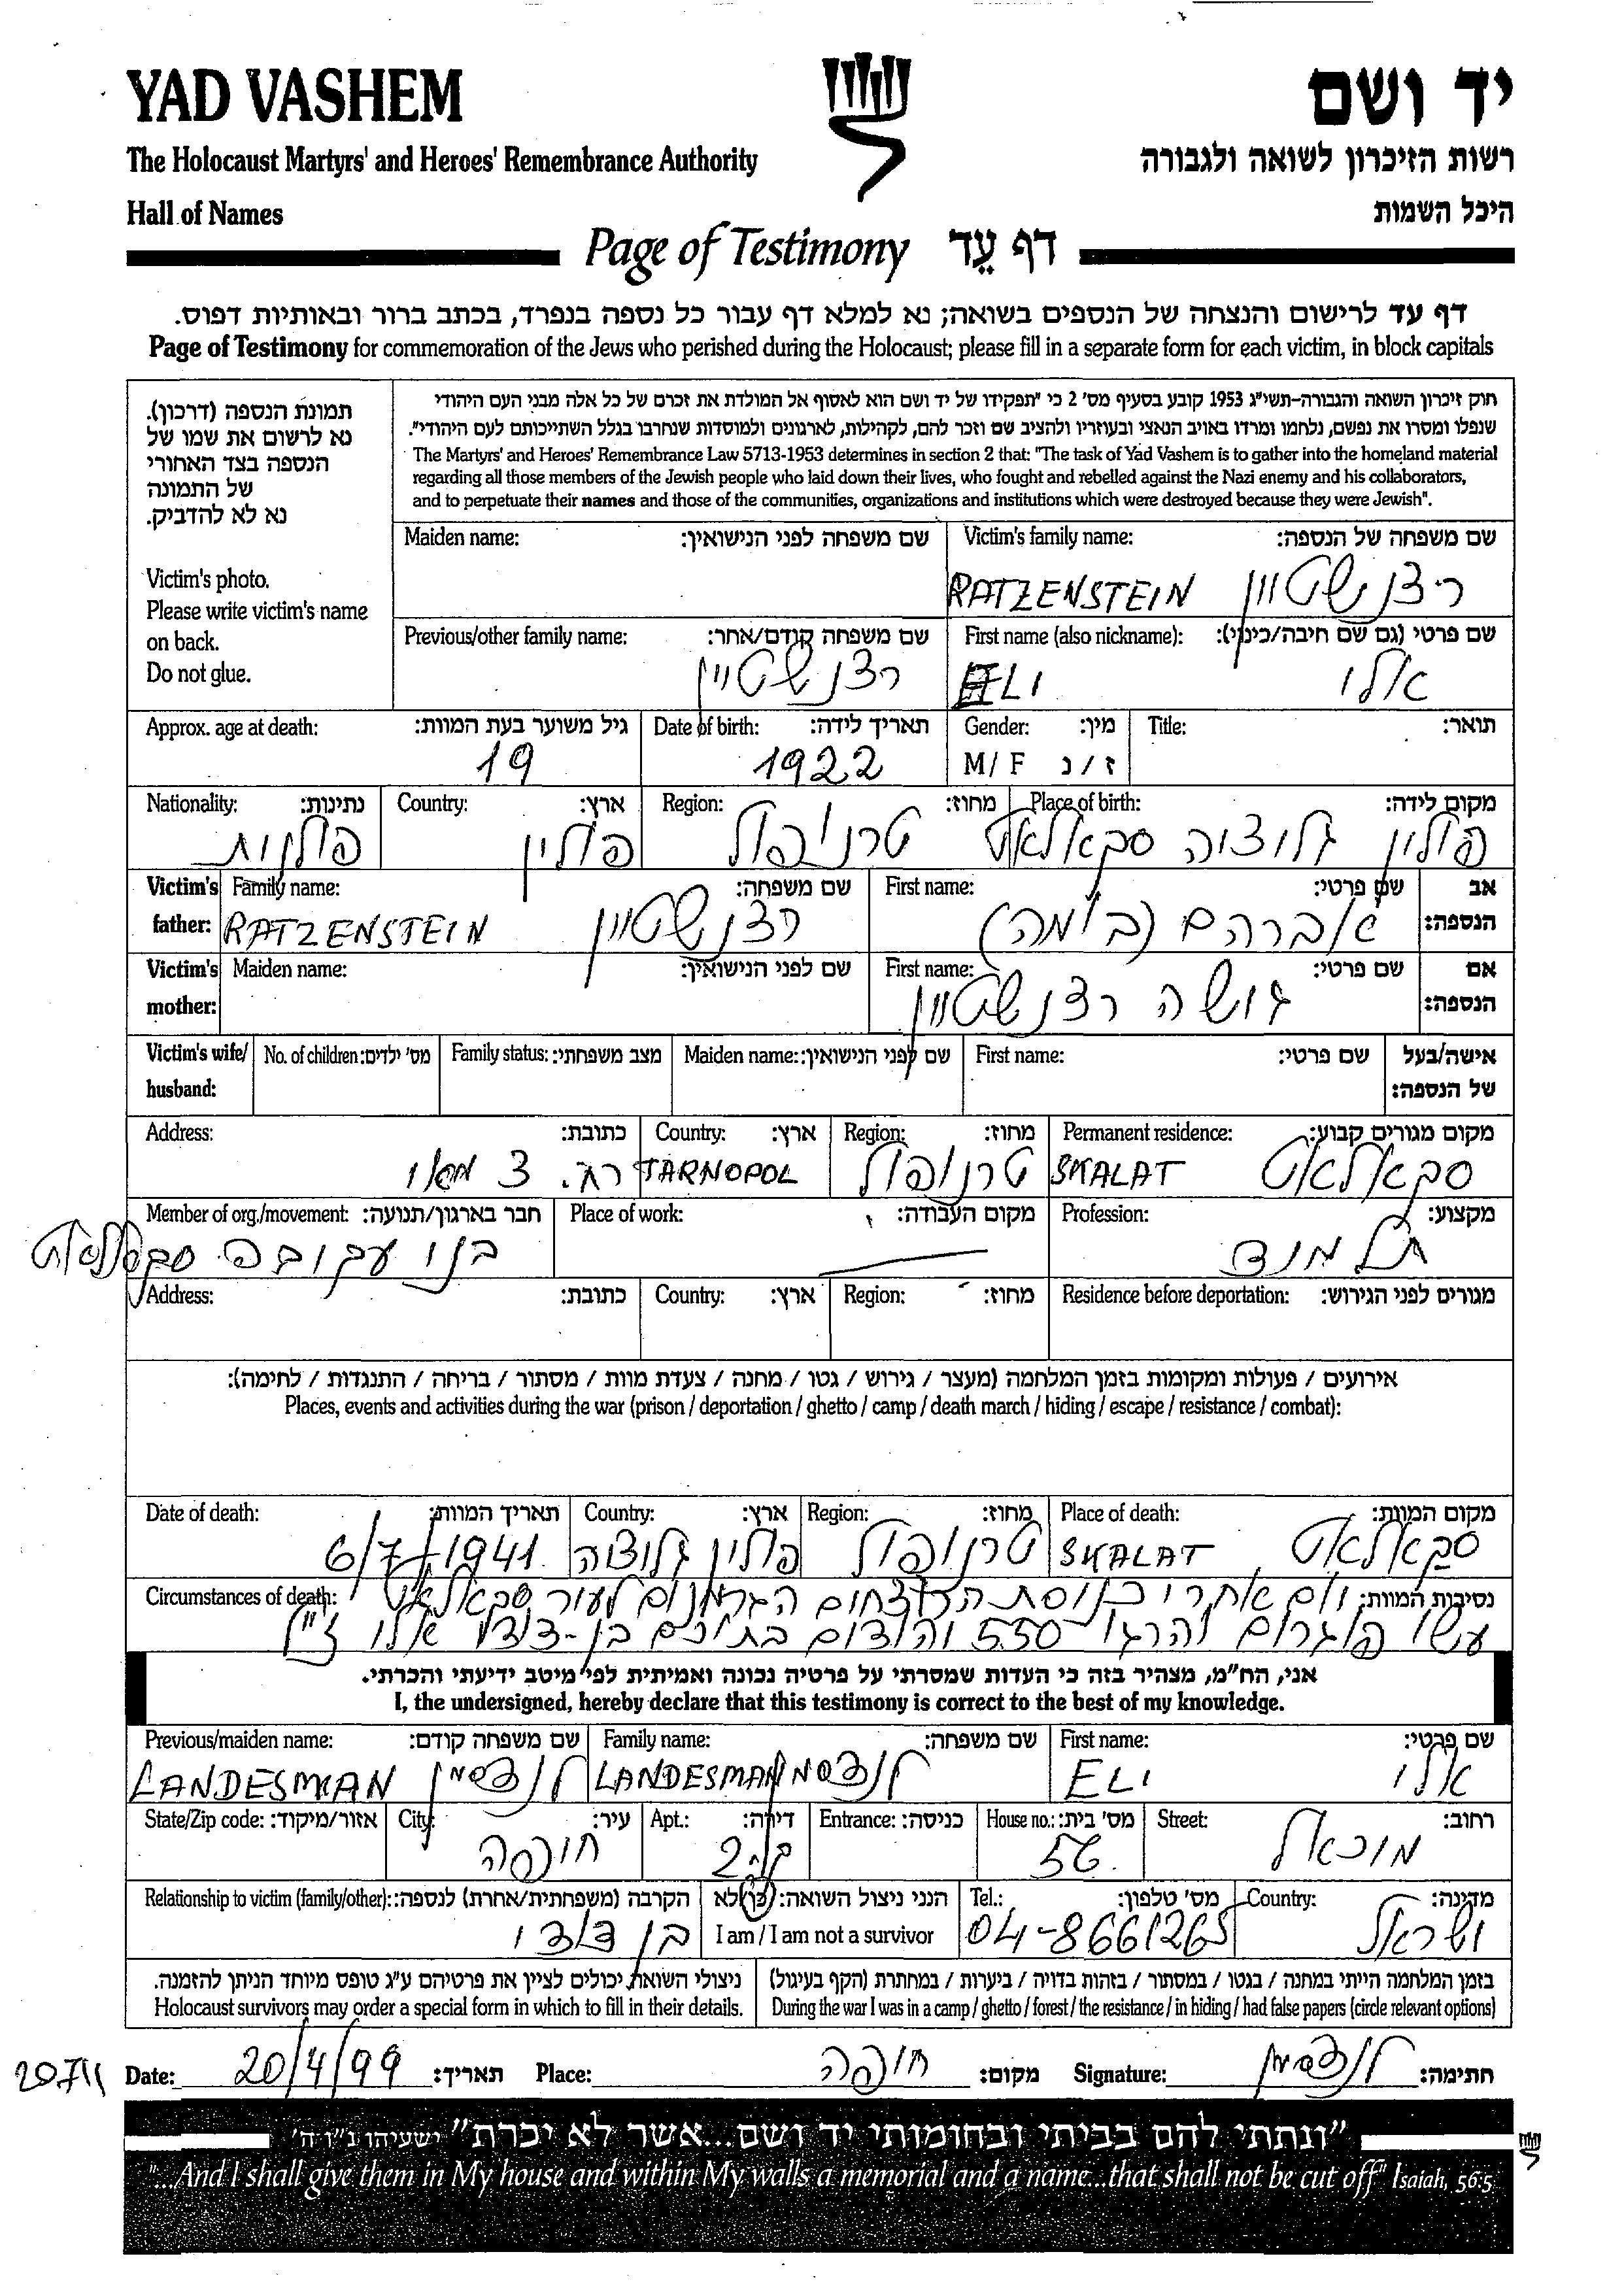 YAD VASHEM
יד ושם
The Holocaust Martyrs' and Heroes' Remembrance Authority
רשות הזיכרון לשואה ולגבורה
Hall of Names
היכל השמות
Page of Testimony דף עֵד
דף עד לרישום והנצחה של הנספים בשואה; נא למלא דף עבור כל נספה בנפרד, בכתב ברור ובאותיות דפוס.
Page of Testimony for commemoration of the Jews who perished during the Holocaust; please fill in a separate form for each victim, in block capitals
תמונת הנספה (דרכון).
נא לרשום את שמו של
הנספה בצד האחורי
של התמונה
נא לא להדביק.
Victim's photo.
Please write victim's name
on back.
Do not glue.
חוק זיכרון השואה והגבורה-תשי״ג 1953 קובע בסעיף מס׳ 2 כי ״תפקידו של יד ושם הוא לאסוף אל המולדת את זכרם של כל אלה מבני העם היהודי
שנפלו ומסרו את נפשם, נלחמו ומרדו באויב הנאצי ובעוזריו ולהציב שם וזכר להם, לקהילות, לארגונים ולמוסדות שנחרבו בגלל השתייכותם לעם היהודי״.
The Martyrs' and Heroes' Remembrance Law 5713-1953 determines in section 2 that: "The task of Yad Vashem is to gather into the homeland material
regarding all those members of the Jewish people who laid down their lives, who fought and rebelled against the Nazi enemy and his collaborators,
and to perpetuate their names and those of the communities, organizations and institutions which were destroyed because they were Jewish".
Maiden name: שם משפחה לפני הנישואין: Victim's family name: שם משפחה של הנספה:
RATZENSTEIN רצנשטיין
Previous/other family name: שם משפחה קודם/אחר: First name (also nickname): שם פרטי (גם שם חיבה/כינוי):
רצנשטיין ELI אלי
Approx. age at death: גיל משוער בעת המוות: Date of birth: תאריך לידה: Gender: מין: Title: תואר:
19 1922 M/ F ז / נ
Nationality: נתינות: Country: ארץ: Region: מחוז: Place of birth: מקום לידה:
פולנית פולין טרנופול פולין גליציה סקאלאט
Victim's father: Family name: שם משפחה: First name: שם פרטי: אב הנספה:
RATZENSTEIN רצנשטיין אברהם
Victim's mother: Maiden name: שם לפני הנישואין: First name: שם פרטי: אם הנספה:
גושה רצנשטיין
Victim's wife/ husband: No. of children: מס׳ ילדים: Family status: מצב משפחתי: Maiden name: שם לפני הנישואין: First name: שם פרטי: אישה/בעל של הנספה:
Address: כתובת: Country: ארץ: Region: מחוז: Permanent residence: מקום מגורים קבוע:
רח. 3 מאי TARNOPOL טרנופול SKALAT סקאלאט
Member of org./movement: חבר בארגון/תנועה: Place of work: מקום העבודה: Profession: מקצוע:
בני עקיבה סקאלאט תלמיד
Address: כתובת: Country: ארץ: Region: מחוז: Residence before deportation: מגורים לפני הגירוש:
אירועים / פעולות ומקומות בזמן המלחמה (מעצר / גירוש / גטו / מחנה / צעדת מוות / מסתור / בריחה / התנגדות / לחימה):
Places, events and activities during the war (prison / deportation / ghetto / camp / death march / hiding / escape / resistance / combat):
Date of death: תאריך המוות: Country: ארץ: Region: מחוז: Place of death: מקום המוות:
6/7/1941 פולין גליציה טרנופול SKALAT סקאלאט
Circumstances of death: נסיבות המוות: יום אחרי כניסת הגרמנים לעיר סקאלאט
עשו פוגרום להרגו 550 יהודים בתוכם בן-דודי אלי ז״ל
אני, הח״מ, מצהיר בזה כי העדות שמסרתי על פרטיה נכונה ואמיתית לפי מיטב ידיעתי והכרתי.
I, the undersigned, hereby declare that this testimony is correct to the best of my knowledge.
Previous/maiden name: שם משפחה קודם: Family name: שם משפחה: First name: שם פרטי:
LANDESMAN לנדסמן LANDESMAN לנדסמן ELI אלי
State/Zip code: אזור/מיקוד: City: עיר: Apt.: דירה: Entrance: כניסה: House no.: מס׳ בית: Street: רחוב:
חיפה ק.2 56 מיכאל
Relationship to victim (family/other): הקרבה (משפחתית/אחרת) לנספה: הנני ניצול השואה: כן/לא Tel.: מס׳ טלפון: Country: מדינה:
בן דודי I am / I am not a survivor 04-8661265 ישראל
ניצולי השואה יכולים לציין את פרטיהם ע״ג טופס מיוחד הניתן להזמנה.
Holocaust survivors may order a special form in which to fill in their details.
בזמן המלחמה הייתי במחנה / בגטו / במסתור / בזהות בדויה / ביערות / במחתרת (הקף בעיגול)
During the war I was in a camp / ghetto / forest / the resistance / in hiding / had false papers (circle relevant options)
Date: 20/4/99 תאריך: Place: חיפה מקום: Signature: לנדסמן חתימה:
״ונתתי להם בביתי ובחומותי יד ושם...אשר לא יכרת״ ישעיהו נ״ו ה׳
"...And I shall give them in My house and within My walls a memorial and a name...that shall not be cut off" Isaiah, 56:5